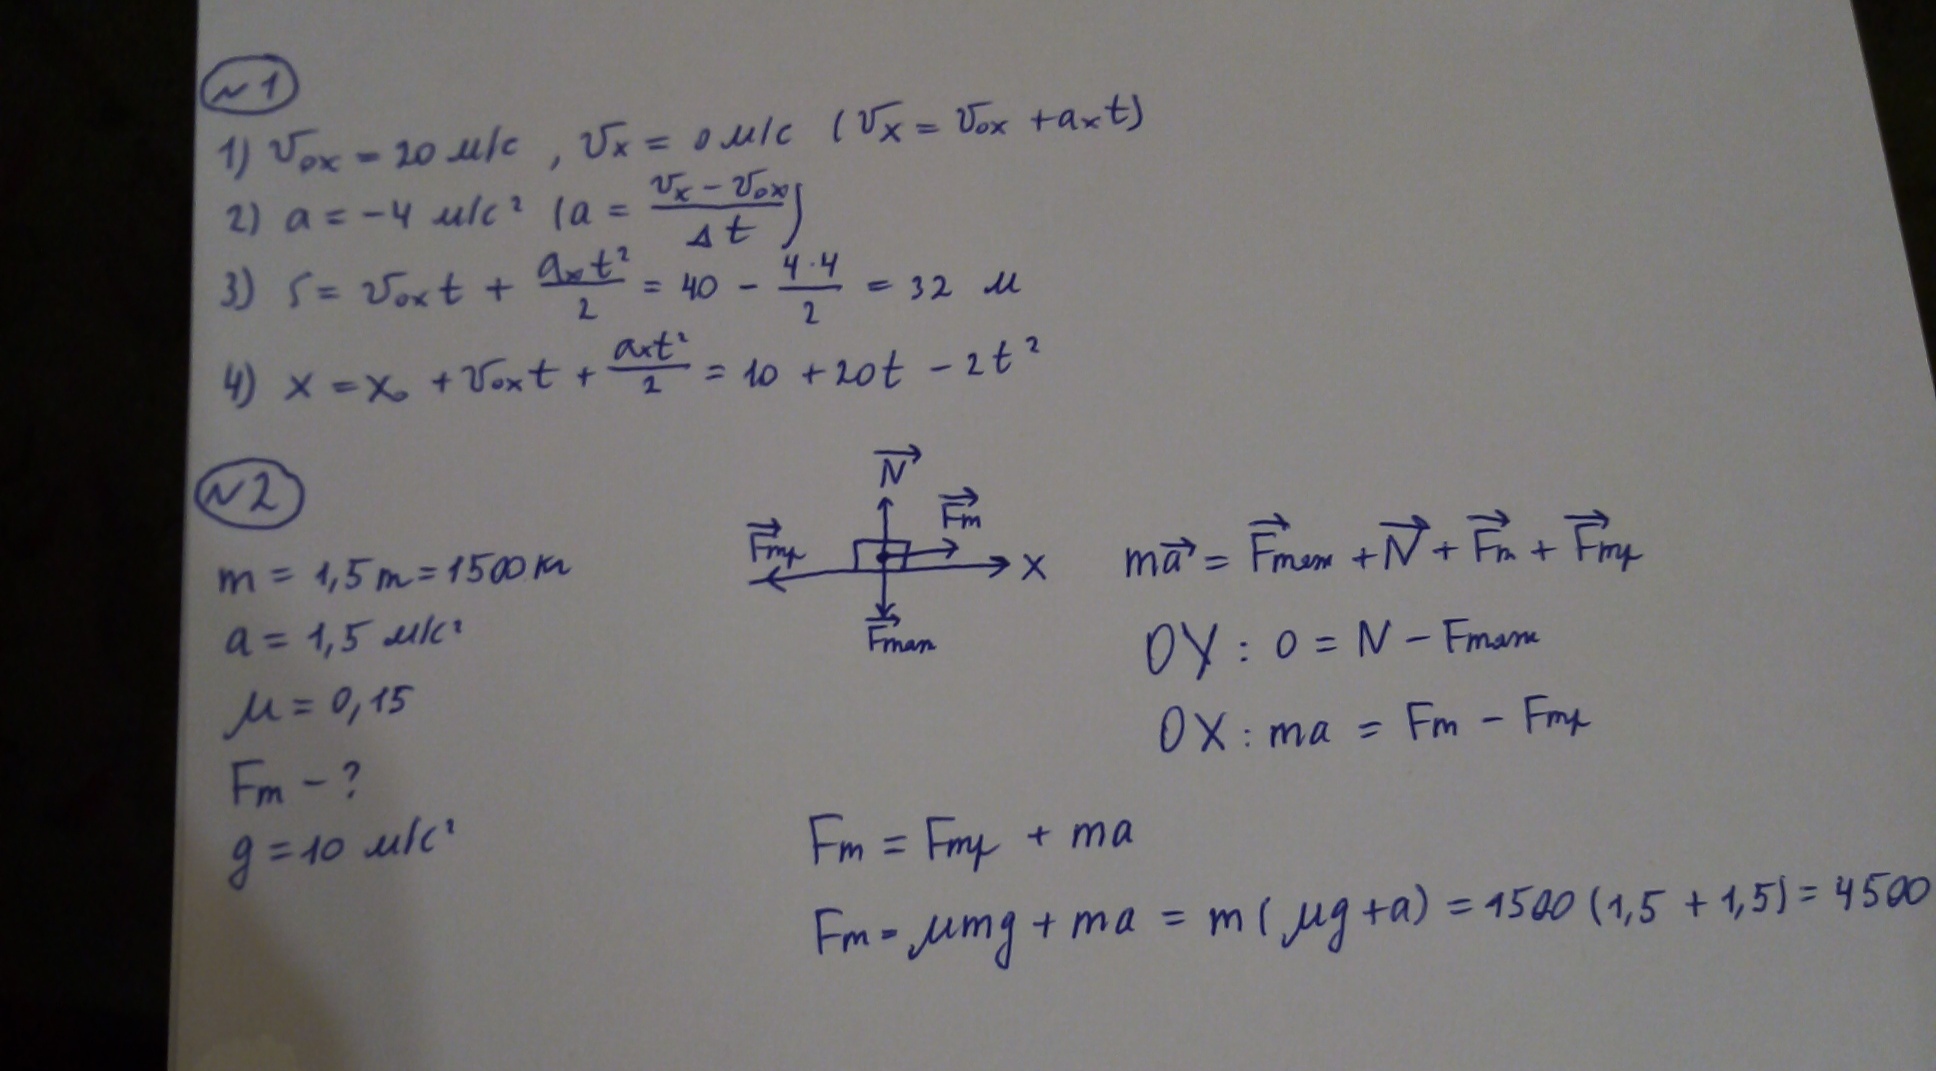 №1
1) v₀ₓ = 20 м/с , vₓ = 0 м/с (vₓ = v₀ₓ + aₓt)
2) a = -4 м/с² (a = (vₓ - v₀ₓ)/Δt)
3) S = v₀ₓt + aₓt²/2 = 40 - 4·4/2 = 32 м
4) x = x₀ + v₀ₓt + aₓt²/2 = 10 + 20t - 2t²
№2
N⃗
F⃗т
F⃗тр
X
F⃗тяж
m = 1,5 т = 1500 кг
a = 1,5 м/с²
μ = 0,15
Fт - ?
g = 10 м/с²
ma⃗ = F⃗тяж + N⃗ + F⃗т + F⃗тр
OY : 0 = N - Fтяж
OX : ma = Fт - Fтр
Fт = Fтр + ma
Fт = μmg + ma = m(μg + a) = 1500 (1,5 + 1,5) = 4500